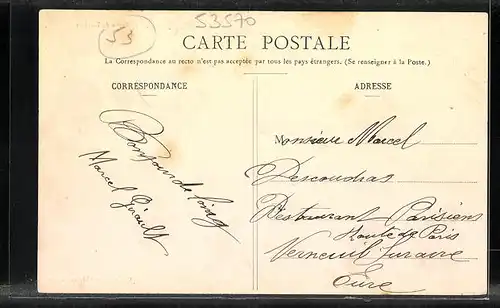 53570
53
CARTE POSTALE
La Correspondance au recto n'est pas acceptée par tous les pays étrangers. (Se renseigner à la Poste.)
CORRESPONDANCE
ADRESSE
Bonjour de
Marcel Girault
Monsieur Marcel
Descoudras
Restaurant Parisiens
Route de Paris
Verneuil sur avre
Eure